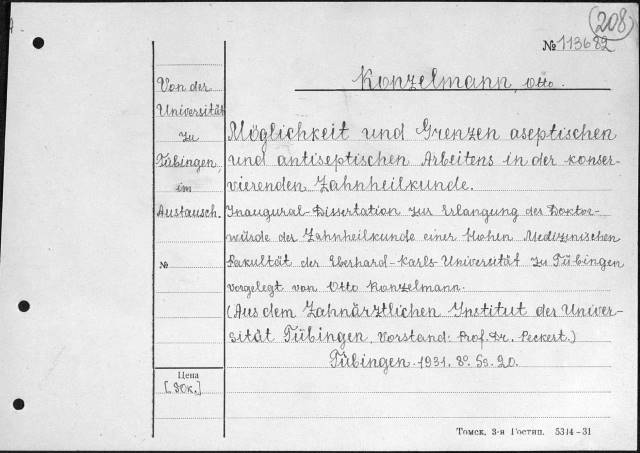 208
№ 113682
Konzelmann, Otto.
Von der
Universität
zu
Tübingen,
im
Austausch.
№
Цена
[30к.]
Möglichkeit und Grenzen aseptischen
und antiseptischen Arbeitens in der konser-
vierenden Zahnheilkunde.
Inaugural-Dissertation zur Erlangung der Doktor-
würde der Zahnheilkunde einer Hohen Medizinischen
Fakultät der Eberhard-Karls-Universität zu Tübingen
vorgelegt von Otto Konzelmann.
(Aus dem Zahnärztlichen Institut der Univer-
sität Tübingen, Vorstand: Prof. Dr. Peckert.)
Tübingen. 1931. 8°. Ss. 20.
Томск, 3-я Гостип. 5314-31